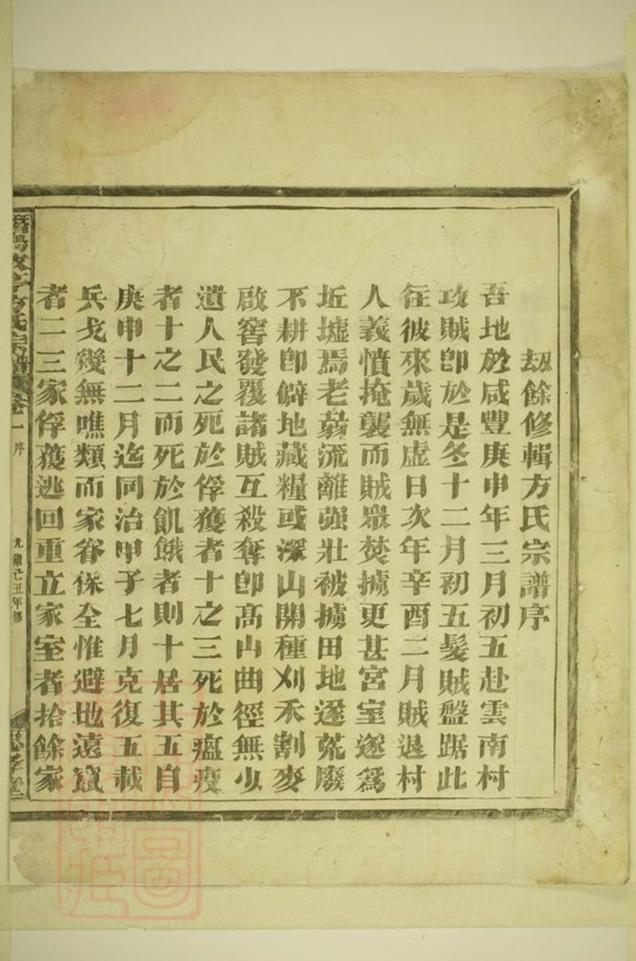 劫餘修輯方氏宗譜序
吾地於咸豐庚申年三月初五赴雲南村
攻賊卽於是冬十二月初五髮賊盤踞此
往彼來歲無虛日次年辛酉二月賊退村
人義憤掩襲而賊眾焚擄更甚宮室遂爲
坵墟焉老蒻流離强壯被擄田地遂荒廢
不耕卽僻地藏糧或深山開種刈禾割麥
啟窖發覆諸賊互殺奪卽髙山曲徑無少
遺人民之死於俘獲者十之三死於瘟疫
者十之二而死於飢餓者則十居其五自
庚申十二月迄同治甲子七月克復五載
兵戈幾無噍類而家眷保全惟避地遠竄
者二三家俘獲逃回重立家室者拾餘家
方氏宗譜 卷一 序 光緒己丑年修